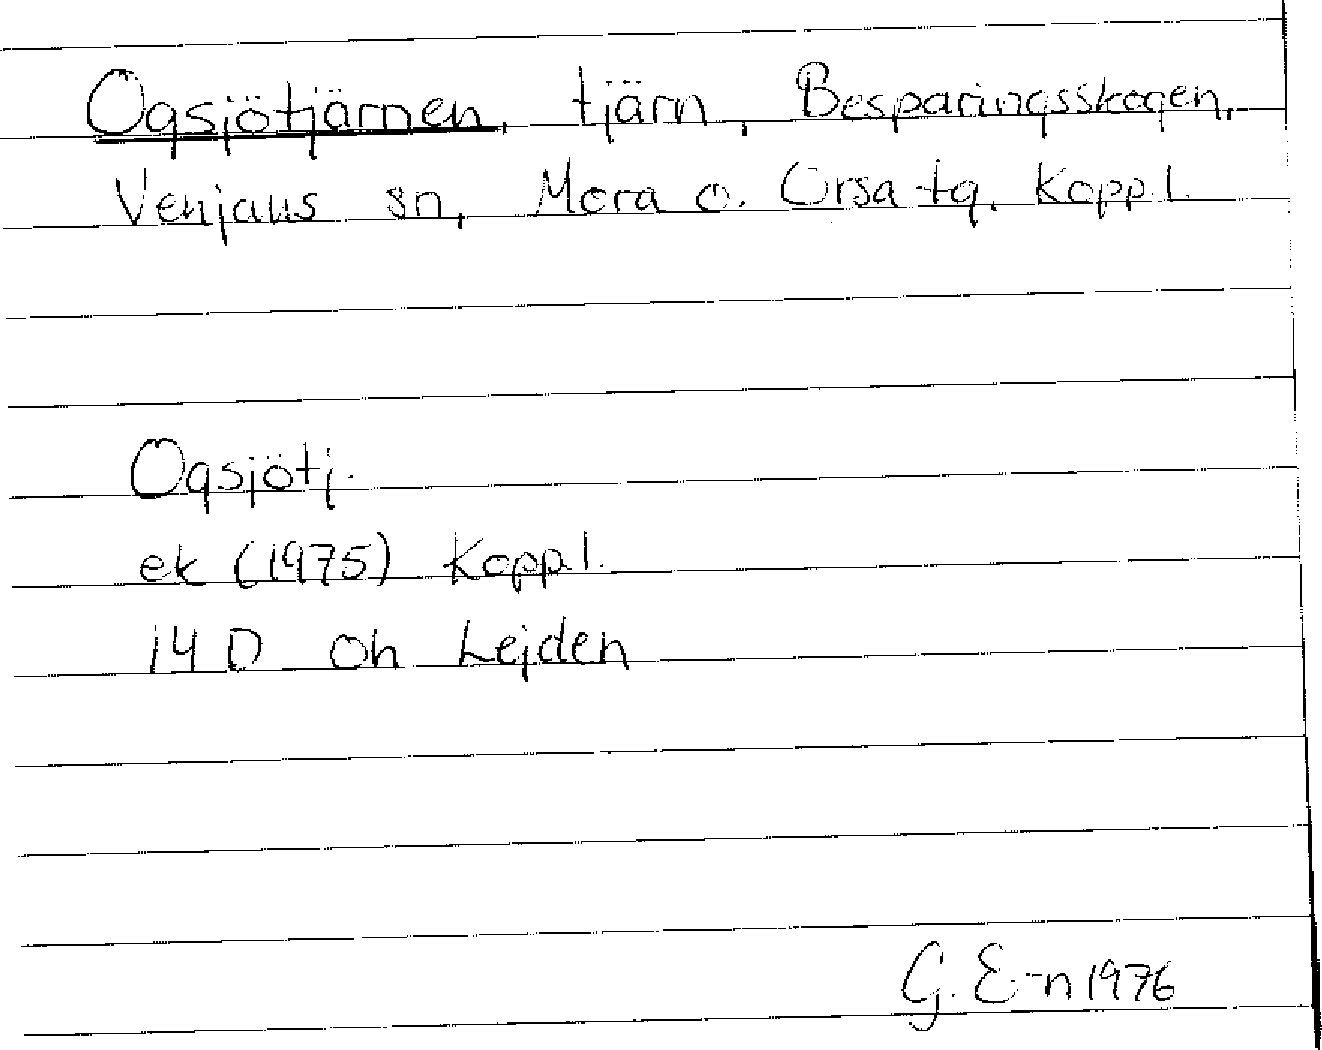 Ogsjötjärnen, tjärn, Besparingsskogen,
Venjans sn, Mora o. Orsa tg. Koppl.
Ogsjötj.
ek (1975) Koppl.
14 D Öh Lejden
G. E-n 1976